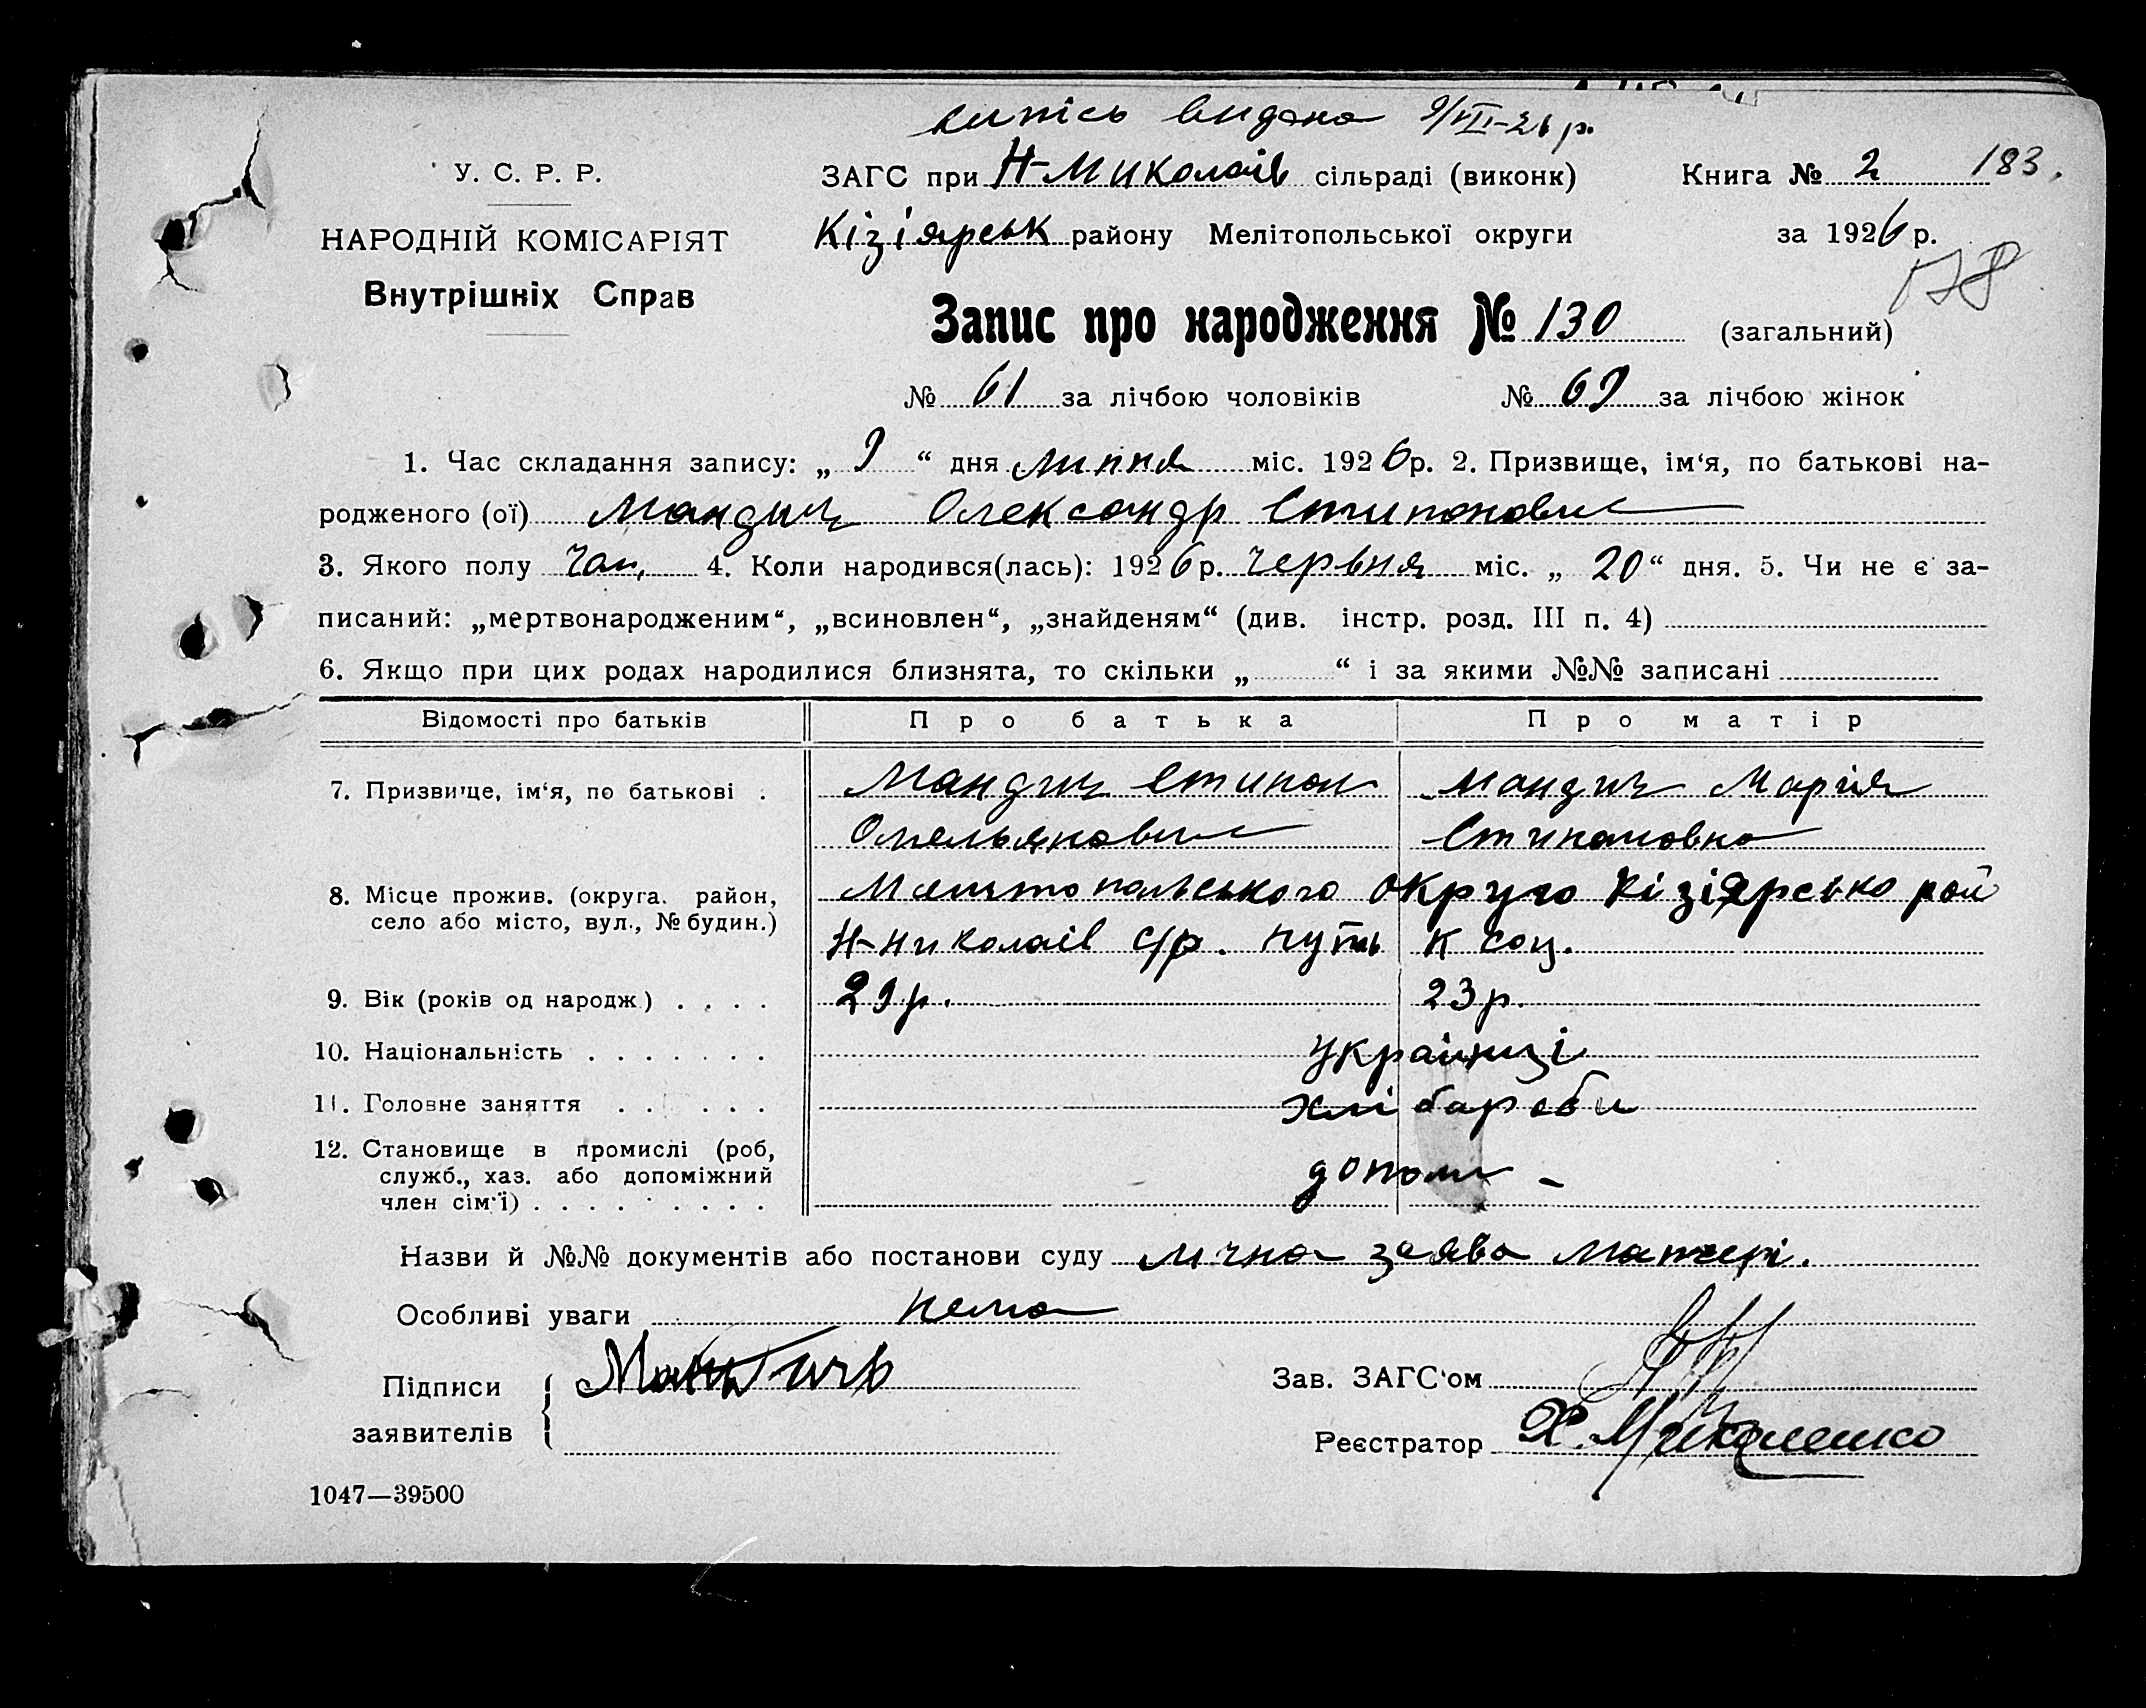 випісь видана 9/VII-26 р.
У. С. Р. Р.
ЗАГС при Н-Миколаїв сільраді (виконк)
Книга № 2 183.
НАРОДНІЙ КОМІСАРІЯТ
Кізіярськ району Мелітопольської округи
за 1926 р.
Внутрішніх Справ
178
Запис про народження № 130 (загальний)
№ 61 за лічбою чоловіків № 69 за лічбою жінок
1. Час складання запису: „ 9 “ дня липня міс. 1926 р. 2. Призвище, ім‘я, по батькові на-
родженого (ої) Мандич Олександр Стипонович
3. Якого полу чол. 4. Коли народився(лась): 1926 р. червня міс. „ 20 “ дня. 5. Чи не є за-
писаний: „мертвонародженим“, „всиновлен“, „знайденям“ (див. інстр. розд. III п. 4)
6. Якщо при цих родах народилися близнята, то скільки „ “ і за якими №№ записані
Відомості про батьків Про батька Про матір
7. Призвище, ім‘я, по батькові . Мандич Стипон Мандич Марія
Омельянович Стипановна
8. Місце прожив. (округа. район, Мелітопольського округо Кізіярсько рай
село або місто, вул., № будин.) Н-Николаїв с/р. путь к соц.
9. Вік (років од народж.) . . . . 29 р. 23 р.
10. Національність . . . . . . . українці
11. Головне заняття . . . . . . хліборобы
12. Становище в промислі (роб,
служб., хаз. або допоміжний допом –
член сім‘ї) . . . . . . . . .
Назви й №№ документів або постанови суду лична заява матері.
Особливі уваги нема
Підписи Мандичь Зав. ЗАГС‘ом
заявителів
Реєстратор Х. Миколенко
1047—39500